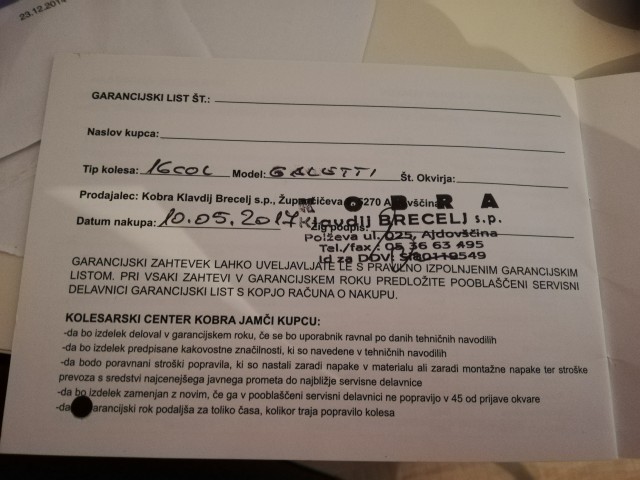 23.12.201
GARANCIJSKI LIST ŠT.:
Naslov kupca:
Tip kolesa: 16COL Model: GALETTI Št. Okvirja:
Prodajalec: Kobra Klavdij Brecelj s.p., 5270
K O B R A
Datum nakupa: 10.05.2017 Žig podpis:
Klavdij BRECELJ s.p.
Polževa ul. 025, Ajdovščina
Tel./fax: 05 36 63 495
Id za DDV:
GARANCIJSKI ZAHTEVEK LAHKO UVELJAVLJATE LE S PRAVILNO IZPOLNJENIM GARANCIJSKIM
LISTOM. PRI VSAKI ZAHTEVI V GARANCIJSKEM ROKU PREDLOŽITE POOBLAŠČENI SERVISNI
DELAVNICI GARANCIJSKI LIST S KOPJO RAČUNA O NAKUPU.
KOLESARSKI CENTER KOBRA JAMČI KUPCU:
-da bo izdelek deloval v garancijskem roku, če se bo uporabnik ravnal po danih tehničnih navodilih
-da bo izdelek predpisane kakovostne značilnosti, ki so navedene v tehničnih navodilih
-da bodo poravnani stroški popravila, ki so nastali zaradi napake v materialu ali zaradi montažne napake ter stroške
prevoza s sredstvi najcenejšega javnega prometa do najbližje servisne delavnice
-da bo izdelek zamenjan z novim, če ga v pooblaščeni servisni delavnici ne popravijo v 45 od prijave okvare
-da garancijski rok podaljša za toliko časa, kolikor traja popravilo kolesa